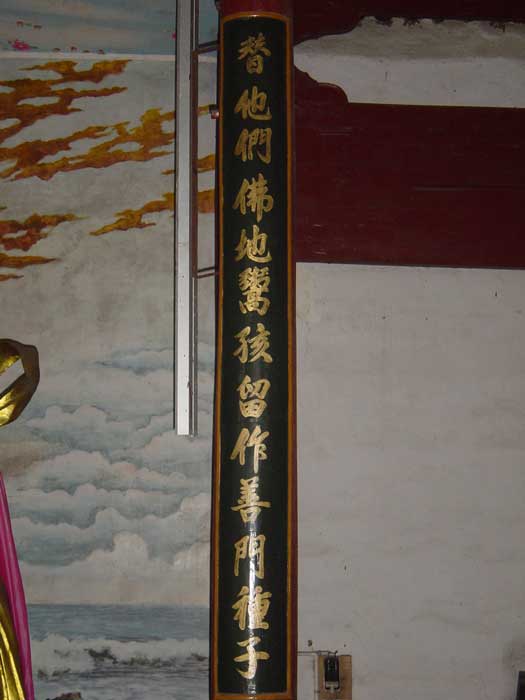 替他們佛地鬻孩留作善門種子